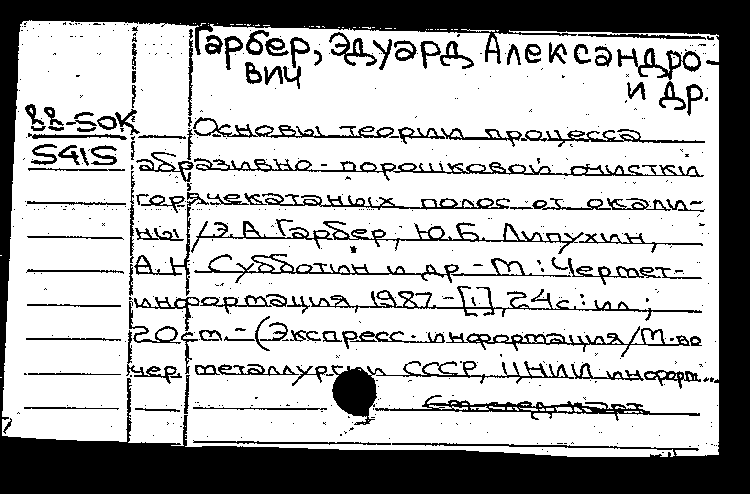 Гарбер, Эдуард Александро-
вич
и др.
88-50К
5415
Основы теории процесса
абразивно-порошковой очистки
горячекатаных полос от окали-
ны /Э.А. Гарбер, Ю.Б. Липухин,
А.Н. Субботин и др.-М.: Чермет-
информация, 1987.-[1], 24с.: ил.;
20см.-(Экспресс-информация/М-во
чер. металлургии СССР, ЦНИИ информ...
См. след. карт